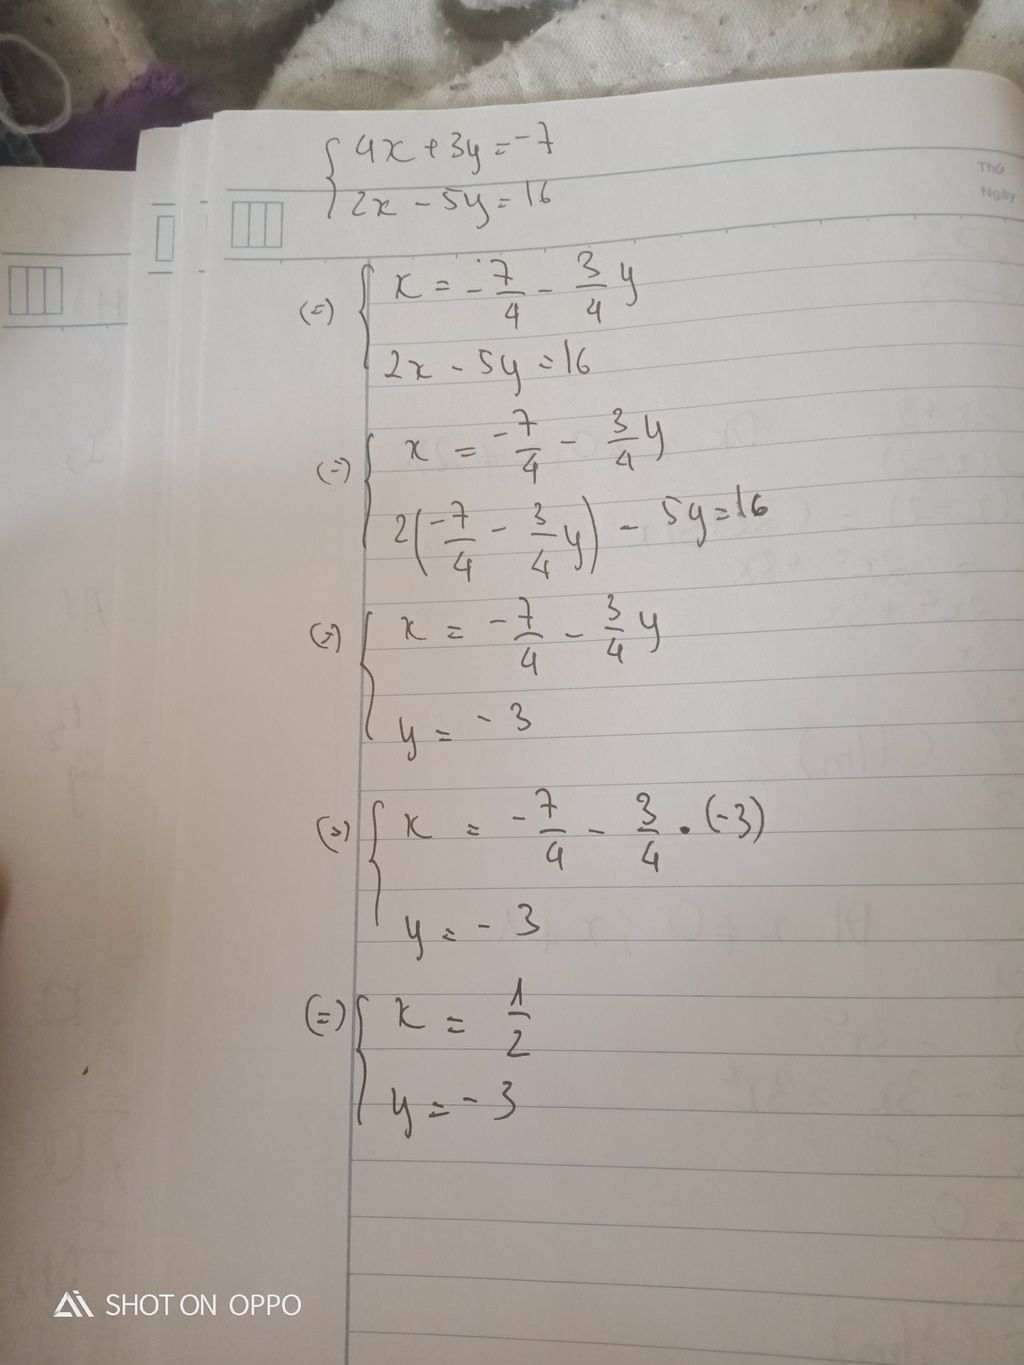 { 4x + 3y = -7
2x - 5y = 16
Thứ
Ngày
(=) { x = -7/4 - 3/4 y
2x - 5y = 16
(=) { x = -7/4 - 3/4 y
2(-7/4 - 3/4 y) - 5y = 16
(=) { x = -7/4 - 3/4 y
y = -3
(=) { x = -7/4 - 3/4 . (-3)
y = -3
(=) { x = 1/2
y = -3
SHOT ON OPPO